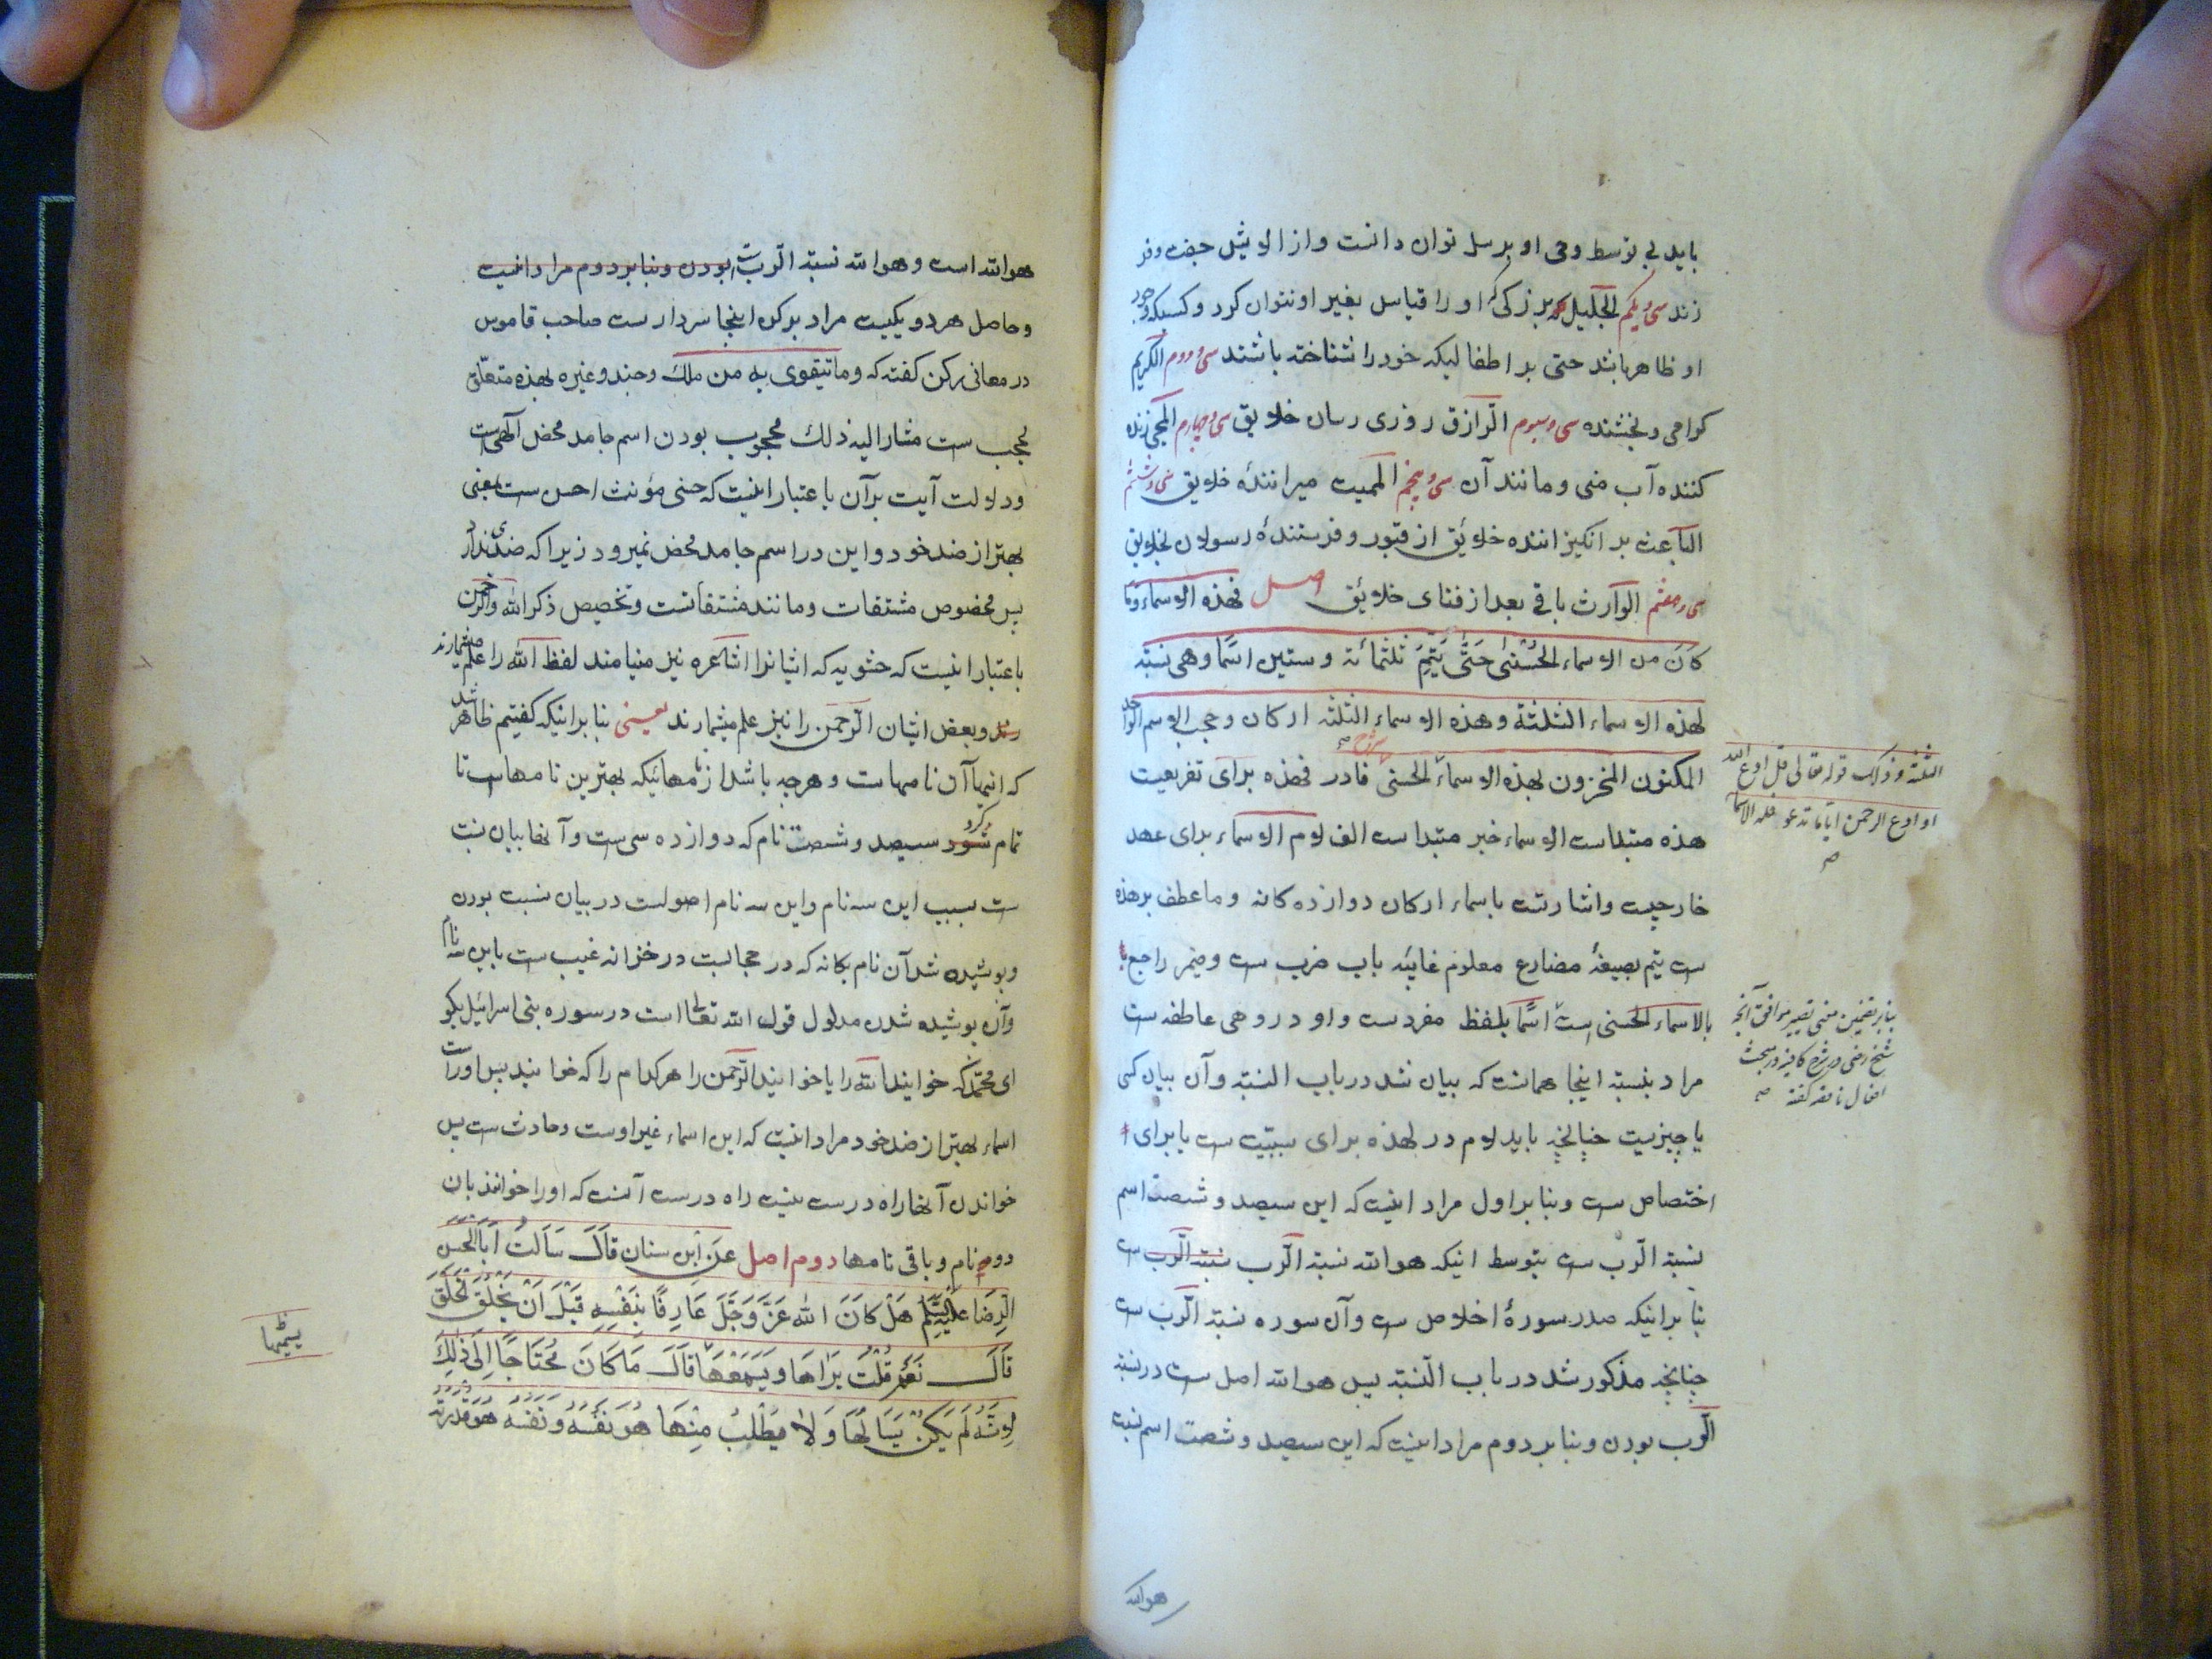 باید بی توسط وحی او برسل توان دانست و از الایش جفت وفر
زند سی ویکم الجلیل بزرکی که او را قیاس بغیر او نتوان کرد و کسیکه وجود
او ظاهر باشد حتی بر اطفالیکه خود را شناخته باشند سی و دوم الکریم
کرامی و بخشنده سی وسیوم الرازق روزی رسان خلایق سی و چهارم المحیی زنده
کننده آب منی و مانند آن سی و پنجم الممیت میرانندهٔ خلایق سی و ششم
الباعث بر انکیزاننده خلائق از قبور و فرستندهٔ رسولان بخلایق
سی و هفتم الوارث باقی بعد از فنای خلائق اصل فهذه الاسماء وما
کان من الاسماء الحُسْنیٰ حَتّٰی یَتِمَّ ثلثمائة وستین اسمًا وهی نسبة
لهذه الاسماء الثلثة وهذه الاسماء الثلثه ارکان وحجب الاسم الواحد
المکنون المخزون بهذه الاسماء الثلثة وذلک قوله تعالی قل ادع الله
او ادع الرحمن ایاما تدعو فله الاسماء
الحسنی شرح فا در فهذه برای تفریعست
هذه مبتداست الاسماء خبر مبتداست الف لام الاسماء برای عهد
خارجیست و اشارتست باسماء ارکان دوازده کانه وما عطف بر هذه
ست یتم بصیغهٔ مضارع معلوم غایبه باب ضرب ست و ضمیر راجع
بالاسماء الحسنی است اسمًا بلفظ مفردست واو در وهی عاطفه ست
بنابر تضمین معنی تصییر موافق آنچه
شیخ رضی در شرح کافیه در مبحث
افعال ناقصه کفته
مراد بنسبة اینجا همانست که بیان شد در باب النسبة و آن بیان کسی
یا چیزیست چنانچه باید لام در لهذه برای سببیّت ست یا برای
اختصاص ست و بنابر اول مراد اینست که این سیصد و شصت اسم
نسبة الرب ست بتوسط اینکه هو الله نسبة الرب نسبة الرب ست
بنابر اینکه صدر سورهٔ اخلاص ست و آن سوره نسبة الرب ست
چنانچه مذکور شد در باب النسبة پس هو الله اصل ست در نسبة
الرب بودن و بنابر دوم مراد اینست که این سیصد و شصت اسم نسبت
هو الله
هو الله است و هو الله نسبة الرب ست بودن و بنابر دوم مراد اینست
و حاصل هر دو یکیست مراد برکن اینجا سردارست صاحب قاموس
در معانی رکن کفته که وما تتقوی به من ملک وجند وغیره بهذه متعلق
بحجب ست مشار الیه ذلک محجوب بودن اسم جامد محض آلهی ست
و دلالت آیت بر آن باعتبار اینست که حسنی مؤنث احسن ست بمعنی
بهتر از ضد خود و این در اسم جامد محض نمیرود زیرا که ضدی ندارد
پس مخصوص مشتقات و مانند مشتقاتست و تخصیص ذکر الله والرحمن
باعتبار اینست که حشویه که ایشانرا اشاعره نیز مینامند لفظ الله را علم میشمارند
و بعض ایشان الرحمن را نیز علم میشمارند یعنی بنابر اینکه کفتیم ظاهر شد
که اینها آن نامهاست و هر چه باشد از نامهائیکه بهترین نامهاست تا
تمام کردد سیصد و شصت نام که دوازده سی ست و آنها بیان نسبت
ست بسبب این سه نام و این سه نام اصولست در بیان نسبت بودن
و پوشیده شد آن نام یکانه که در حجابست در خزانه غیب ست باین سه نام
و آن پوشیده شدن مدلول قول الله تعالی است در سوره بنی اسرائیل بکو
ای محمد که خوانید الله را یا خوانید الرحمن را هر کدام را که خوانید پس او راست
اسماء بهتر از ضد خود مراد اینست که این اسماء غیر اوست و حادث ست پس
خواندن آنها راه درست نیست راه درست آنست که او را خوانند بآن
دو نام و باقی نامها دوم اصل عن ابن سنان قَالَ سَاَلْتُ اَبَا الْحَسَنِ
الرِضَا عَلَیْهِ السَّلَمُ هَلْ کَانَ الله عَزَّ وَجَلَّ عَارِفًا بِنَفْسِهِ قَبْلَ اَنْ یَخْلُقَ الْخَلْقَ
قَالَ نَعَمْ قُلْتُ یَرَاهَا وَیَسْمَعُهَا قَالَ مَا کَانَ مُحْتَاجًا اِلٰی ذٰلِکَ
یسمیها
لِاَنَّهُ لَمْ یَکُنْ یَسْاَلُهَا وَلَا یَطْلُبُ مِنْهَا هُوَ نَفْسُهُ وَنَفْسُهُ هُوَ قُدْرَتُهُ